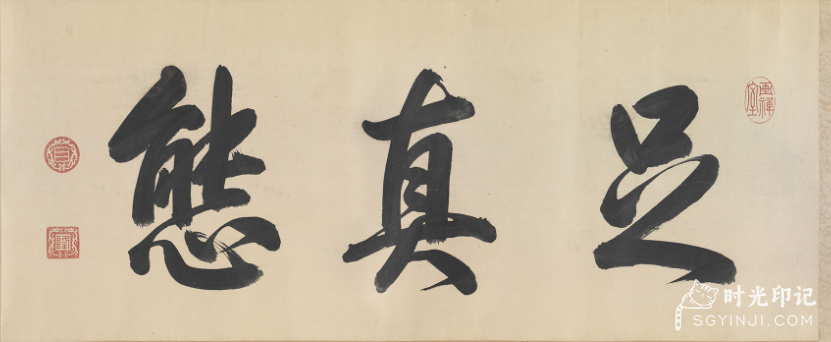 足真態
時光印记
SGYINJI.COM